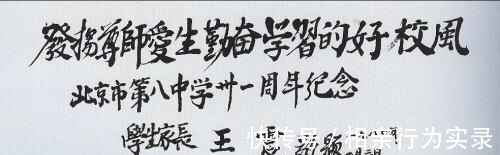 發揚尊師愛生勤奋学習的好校風
北京市第八中学卅一周年纪念
學生家長 王
快传号/相亲行为实录